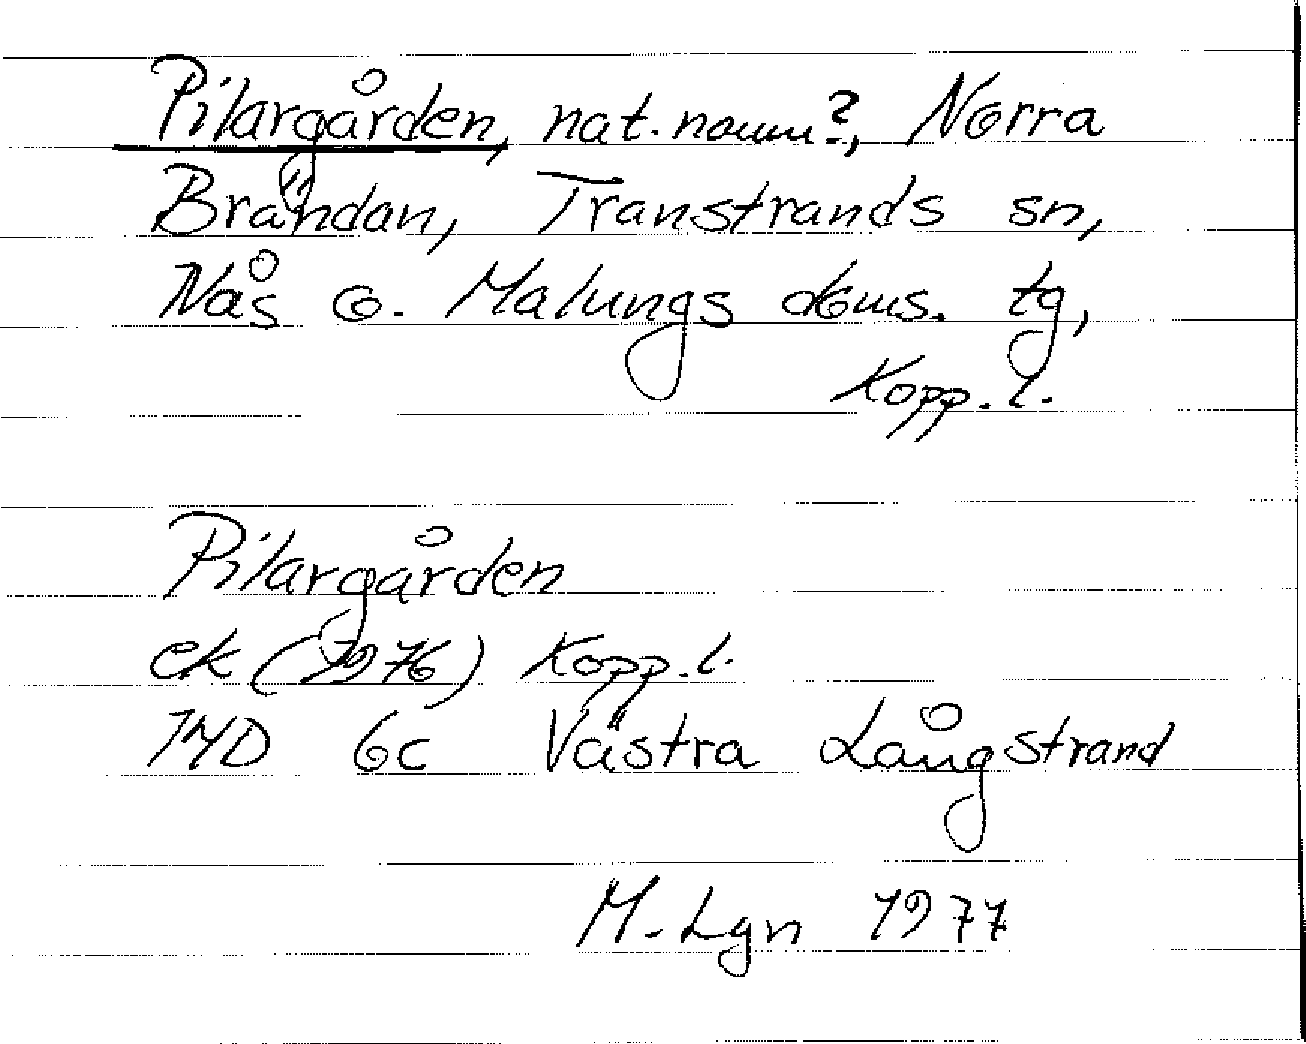 Pilargården, nat. namn?, Norra
Brändan, Transtrands sn,
Nås o. Malungs doms. tg,
Kopp. l.
Pilargården
ek (1976) Kopp. l.
14D 6c Västra Långstrand
M. Lgn 1977